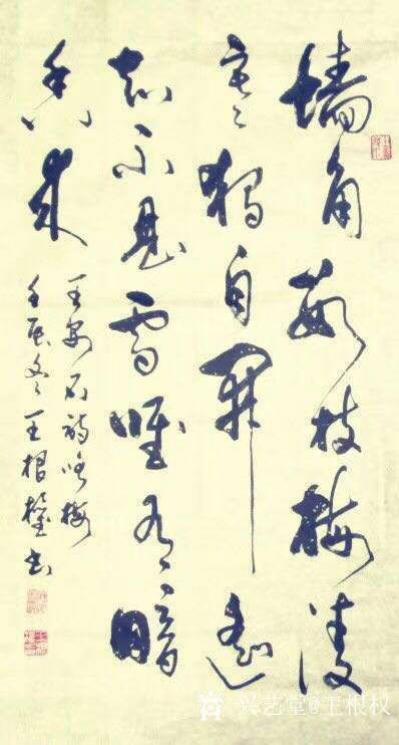 墙角数枝梅凌
寒独自開遥
知不是雪唯有暗
香来
王安石诗咏梅
壬辰冬王根權书
兴艺堂@王根权